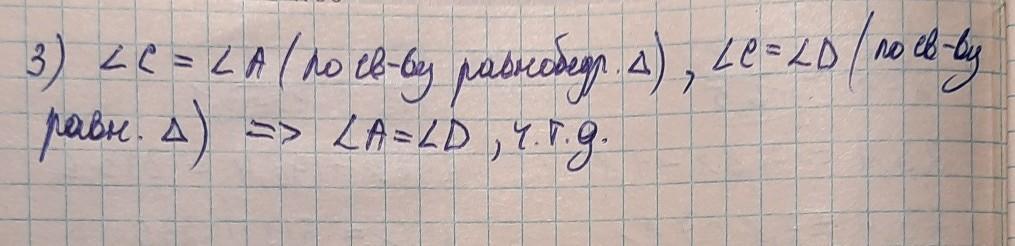 3) ∠C = ∠A (по св-ву равнобедр. Δ), ∠C = ∠D (по св-ву
равн. Δ) => ∠A = ∠D, ч.т.д.